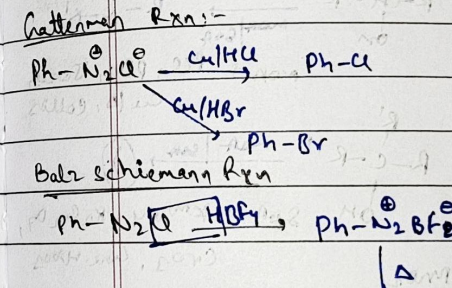 Gattermen Rxn:-
Ph-N₂⊕Cl⊖ Cu/HCl → Ph-Cl
Cu/HBr → Ph-Br
Balz schiemann Rxn
Ph-N₂Cl HBF₄ → Ph-N₂⊕BF₄⊖
Δ